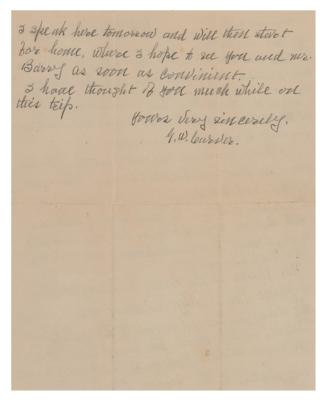 I speak here tomorrow and will then start
for home, where I hope to see you and mr.
Barry as soon as convenient.
I have thought of you much while on
this trip.
Yours Very sincerely,
G. W. Carver.